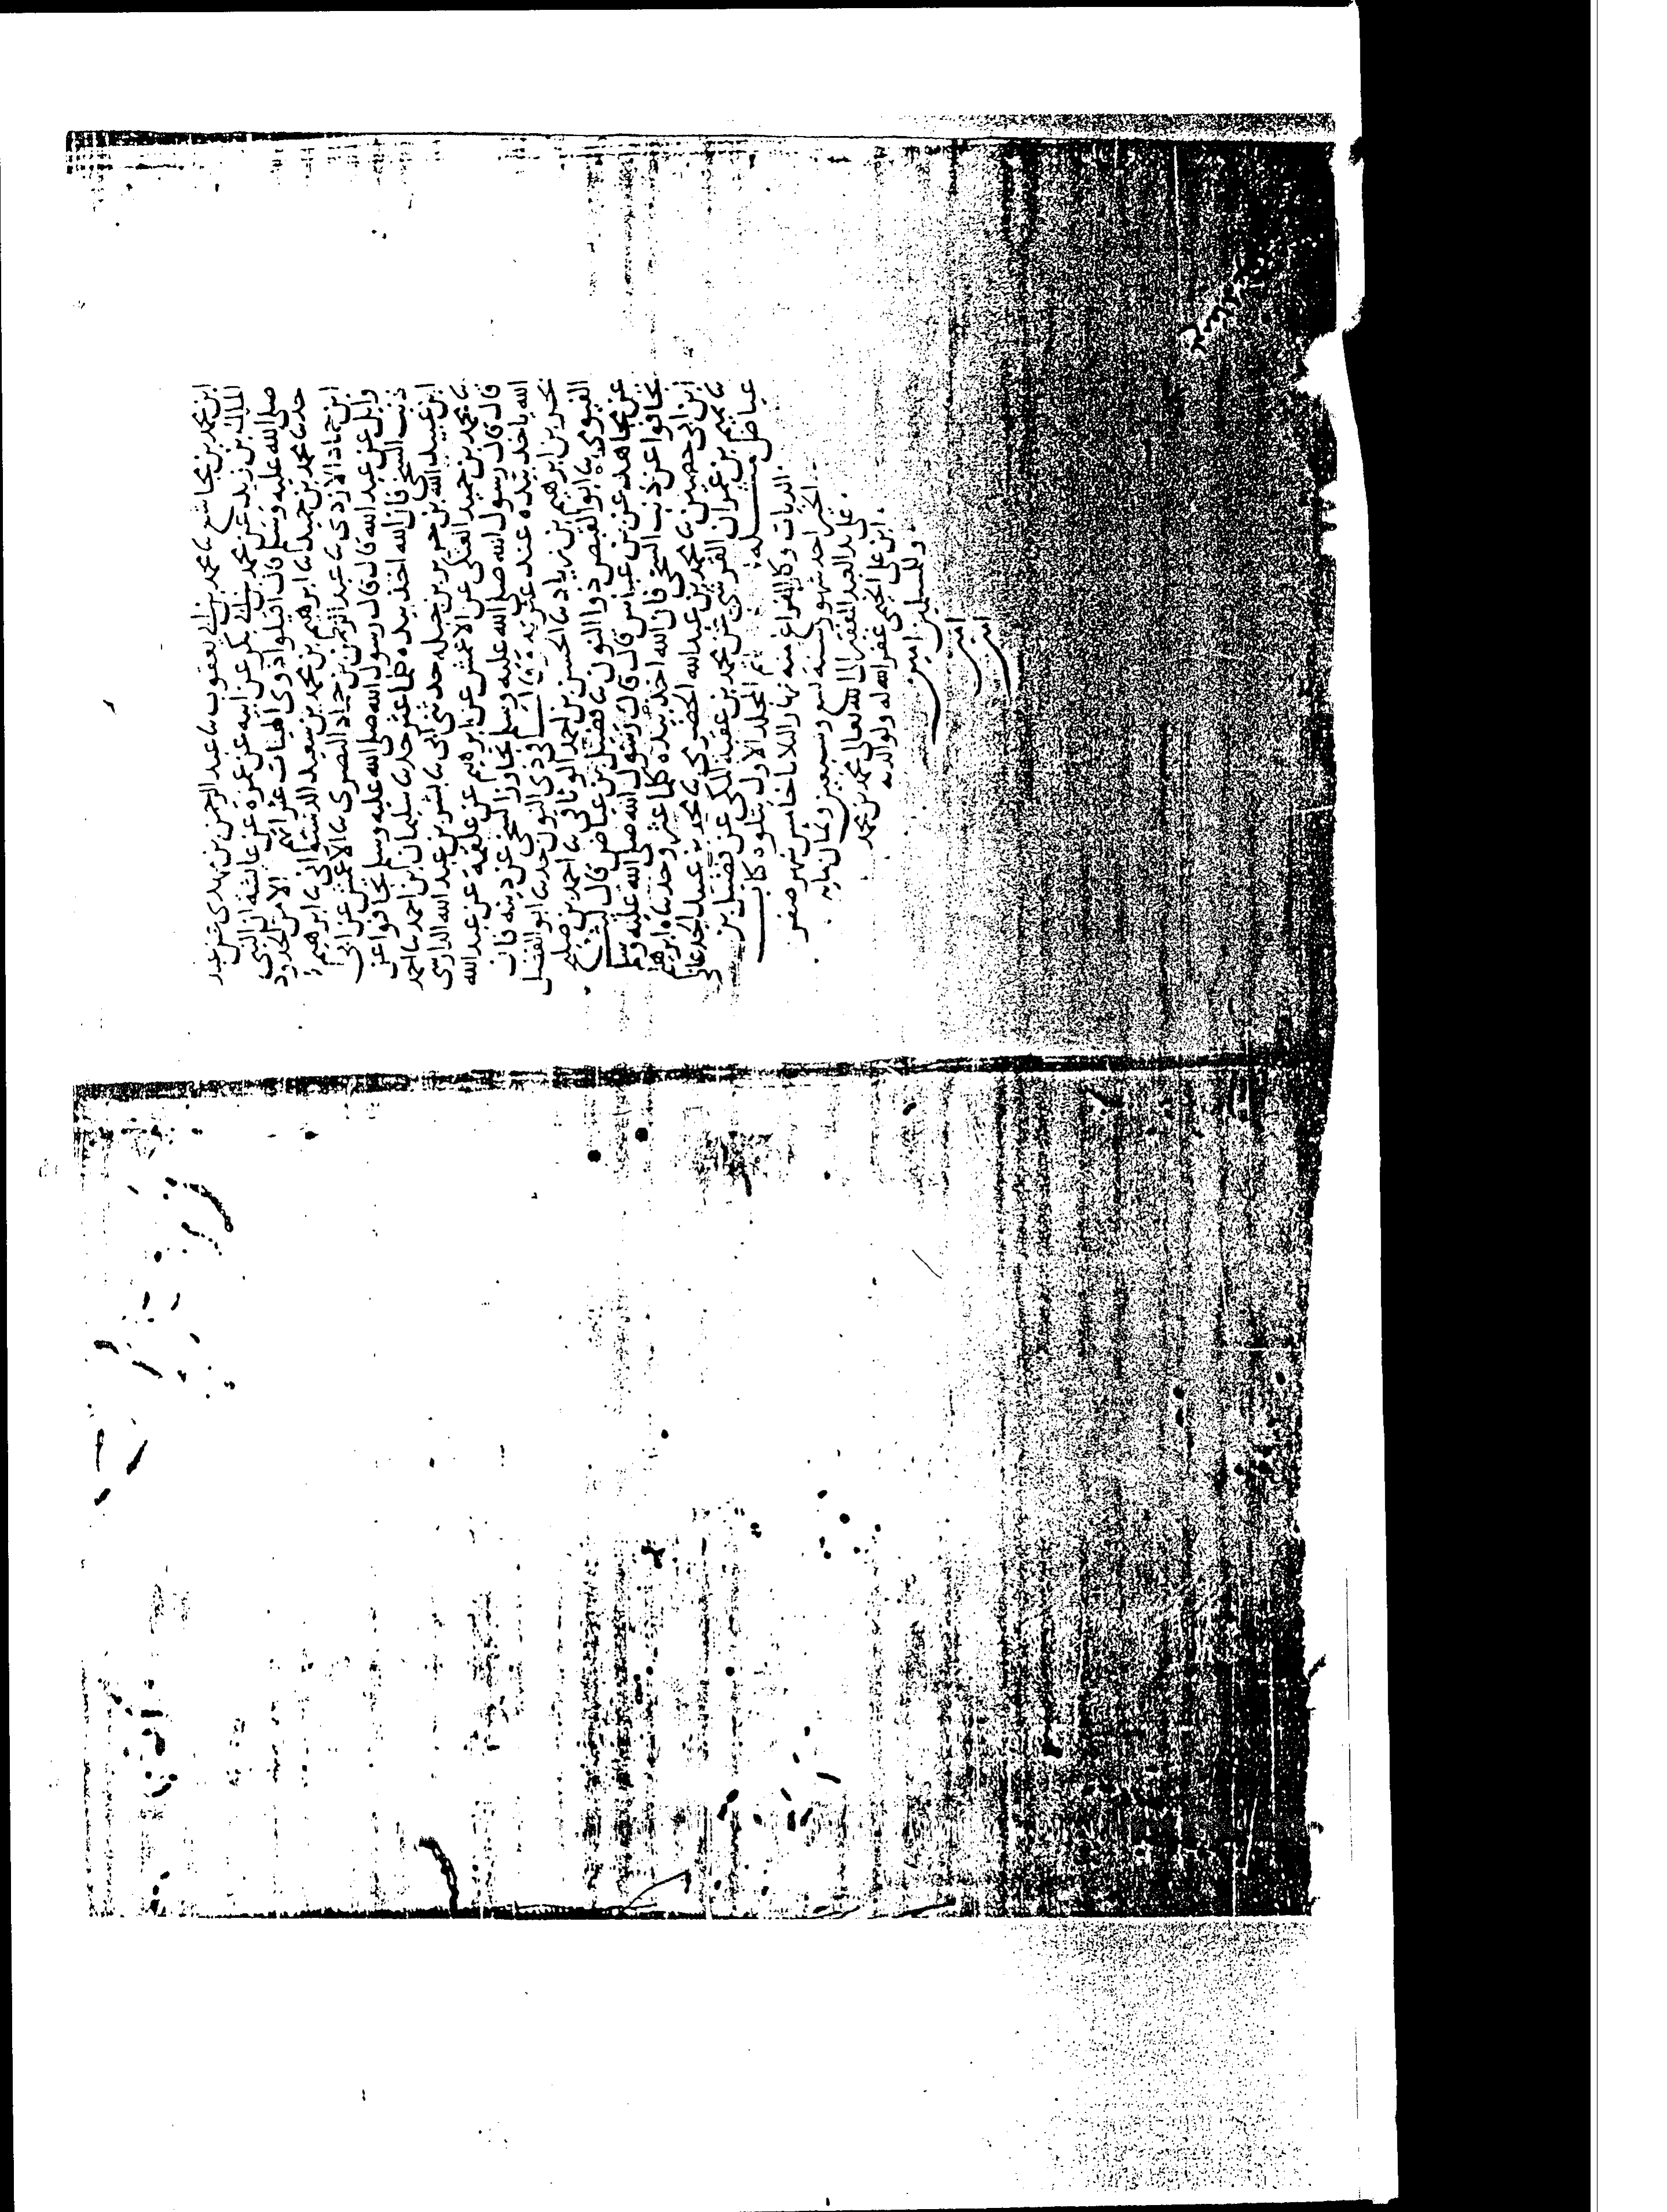 ابن محمد بن مجاشع ثنا محمد بن ابي يعقوب ثنا عبد الرحمن بن مهدي عن عبد
الملك بن زيد عن محمد بن ابي بكر عن ابيه عن عمرة عن عائشة ان النبي
صلى الله عليه وسلم قال اقيلوا ذوي الهيئات عثراتهم الا من الحدود
حدثنا محمد بن حميد ثنا ابرهيم بن محمد بن سعيد الدستواني ثنا ابرهيم
ابن حماد الازدي ثنا عبد الرحمن بن حماد البصري ثنا الاعمش عن ابي
وايل عن عبد الله قال قال رسول الله صلى الله عليه وسلم تجافوا عن
ذنب السخي فان الله اخذ بيده كلما عثر حدثنا سليمان ابن احمد ثنا احمد
ابن عبيد الله بن جرير بن جبله حدثني ابي ثنا بشر بن عبد الله الدارسي
ثنا محمد بن حميد العتكي عن الاعمش عن ابرهيم عن علقمة عن عبد الله
قال قال رسول الله صلى الله عليه وسلم تجاوزوا للسخي عن ذنبه فان
الله ياخذ بيده عند عثرته ذي النون حدثنا ابو الفضل
نصر بن ابرهيم بن زياد ثنا الحسن بن احمد ثنا احمد بن صليح
الفيومي ثنا ابو الفيض ذو النون ثنا فضيل بن عياض قال ليث
عن مجاهد عن بن عباس قال قال رسول الله صلى الله عليه وسلم
تجافوا عن ذنب السخي فان الله اخذ بيده كلما عثر وحدثناه ابرهيم
ابن ابي حصين ثنا محمد بن عبد الله الحضرمي ثنا محمد بن عبيد الجدعاني
ثنا تميم بن عمران القرشي عن محمد بن عقبة المكي عن فضيل بن
عياض مثله تم المجلد الاول يتلوه كتاب
الديات وكان الفراغ منه نهار الثلاثا خامس شهر صفر
الخير احد شهور سنة تسع وسبعين وثمان مايه
على يد العبد الفقير الى الله تعالى محمد بن محمد
ابن علي غفر الله له ولوالديه
وللمسلمين امين
امين